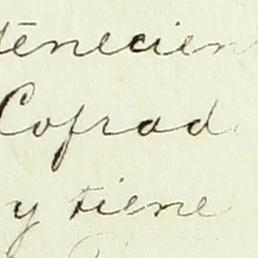 tenecien
Cofrad
y tiene